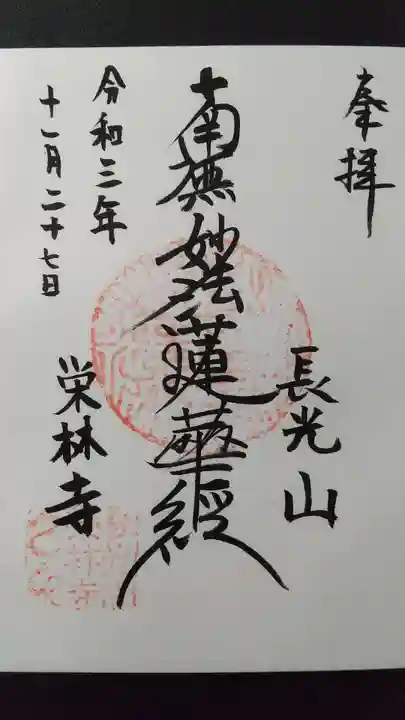 奉拝
長光山
南無妙法蓮華經
令和三年
十一月二十七日
栄林寺